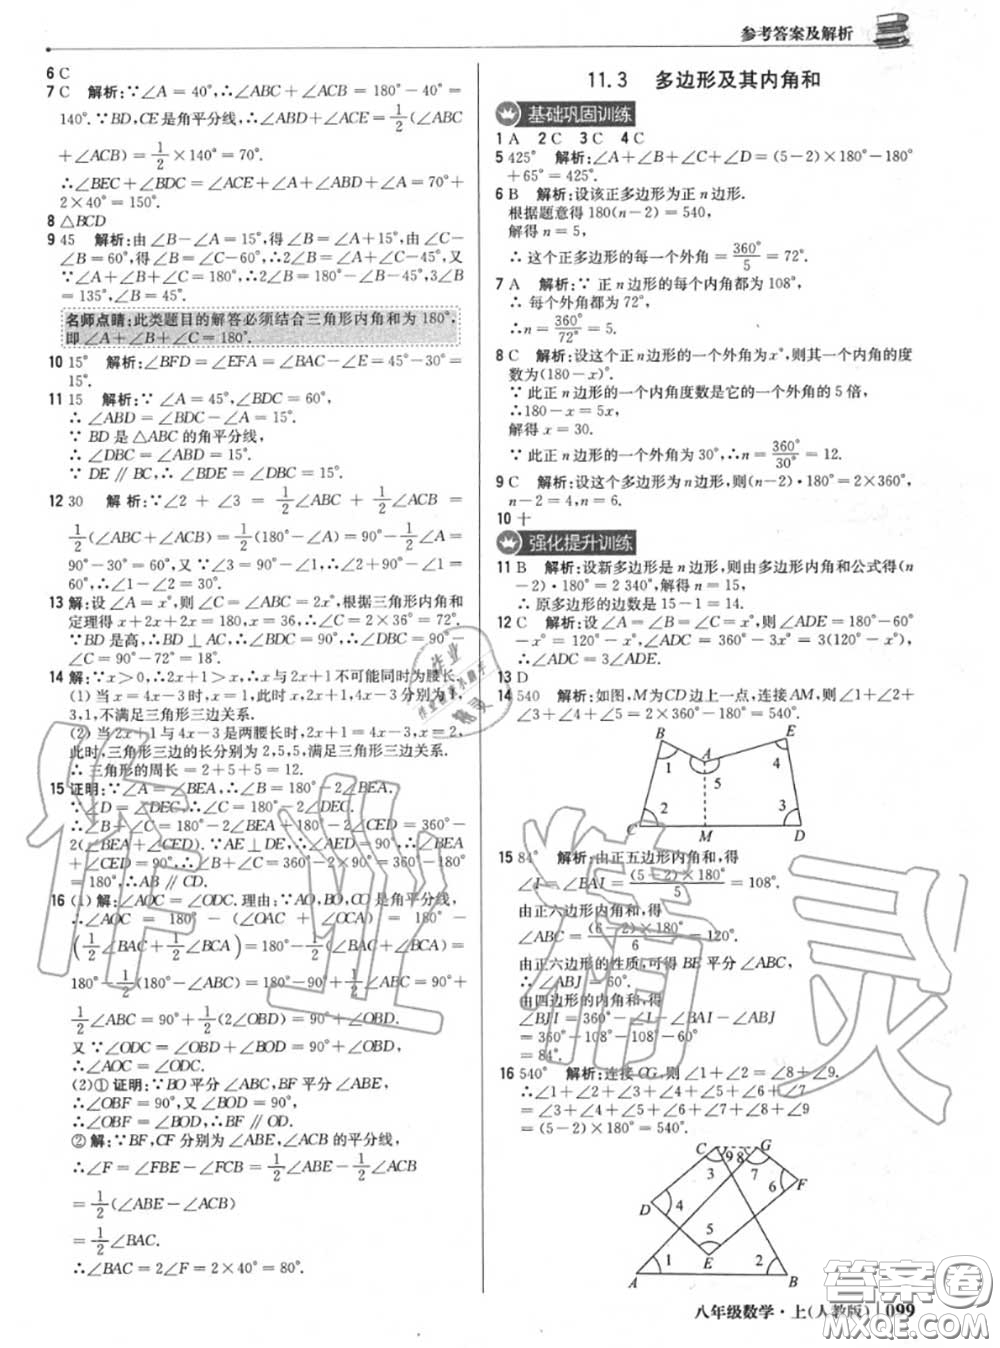 参考答案及解析
6 C
7 C 解析:∵∠A=40°,∴∠ABC+∠ACB=180°-40°=
140°.∵BD,CE是角平分线,∴∠ABD+∠ACE=1/2(∠ABC
+∠ACB)=1/2×140°=70°.
∴∠BEC+∠BDC=∠ACE+∠A+∠ABD+∠A=70°+
2×40°=150°.
8 △BCD
9 45 解析:由∠B-∠A=15°,得∠B=∠A+15°,由∠C-
∠B=60°,得∠B=∠C-60°,∴2∠B=∠A+∠C-45°,又
∵∠A+∠B+∠C=180°,∴2∠B=180°-∠B-45°,∴3∠B
=135°,∠B=45°.
名师点睛:此类题目的解答必须结合三角形内角和为180°,
即∠A+∠B+∠C=180°.
10 15° 解析:∠BFD=∠EFA=∠BAC-∠E=45°-30°=
15°.
11 15 解析:∵∠A=45°,∠BDC=60°,
∴∠ABD=∠BDC-∠A=15°.
∵BD是△ABC的角平分线,
∴∠DBC=∠ABD=15°.
∵DE∥BC,∴∠BDE=∠DBC=15°.
12 30 解析:∵∠2+∠3=1/2∠ABC+1/2∠ACB=
1/2(∠ABC+∠ACB)=1/2(180°-∠A)=90°-1/2∠A=
90°-30°=60°,又∵∠3=90°-∠1,∴∠2+90°-∠1=
60°,∴∠1-∠2=30°.
13 解:设∠A=x°,则∠C=∠ABC=2x°,根据三角形内角和
定理得x+2x+2x=180,x=36,∴∠C=2×36°=72°.
∵BD是高,∴BD⊥AC,∴∠BDC=90°,∴∠DBC=90°-
∠C=90°-72°=18°.
14 解:∵x>0,∴2x+1>x,∴x与2x+1不可能同时为腰长.
(1)当x=4x-3时,x=1,此时,x,2x+1,4x-3分别为1,
3,1,不满足三角形三边关系.
(2)当2x+1与4x-3是两腰长时,2x+1=4x-3,x=2,
此时,三角形三边的长分别为2,5,5,满足三角形三边关系.
∴三角形的周长=2+5+5=12.
15 证明:∵∠A=∠BEA,∴∠B=180°-2∠BEA.
∵∠D=∠DEC,∴∠C=180°-2∠DEC.
∴∠B+∠C=180°-2∠BEA+180°-2∠CED=360°-
2(∠BEA+∠CED).∵AE⊥DE,∴∠AED=90°,∴∠BEA+
∠CED=90°,∴∠B+∠C=360°-2×90°=360°-180°
=180°,∴AB∥CD.
16 (1)解:∠AOC=∠ODC.理由:∵AO,BO,CO是角平分线,
∴∠AOC=180°-(∠OAC+∠OCA)=180°-
(1/2∠BAC+1/2∠BCA)=180°-1/2(∠BAC+∠BCA)=
180°-1/2(180°-∠ABC)=180°-90°+1/2∠ABC=90°+
1/2∠ABC=90°+1/2(2∠OBD)=90°+∠OBD.
又∵∠ODC=∠OBD+∠BOD=90°+∠OBD,
∴∠AOC=∠ODC.
(2)①证明:∵BO平分∠ABC,BF平分∠ABE,
∴∠OBF=90°,又∵∠BOD=90°,
∴∠OBF=∠BOD,∴BF∥OD.
②解:∵BF,CF分别为∠ABE,∠ACB的平分线,
∴∠F=∠FBE-∠FCB=1/2∠ABE-1/2∠ACB
=1/2(∠ABE-∠ACB)
=1/2∠BAC.
∴∠BAC=2∠F=2×40°=80°.
11.3 多边形及其内角和
基础巩固训练
1 A 2 C 3 C 4 C
5 425° 解析:∠A+∠B+∠C+∠D=(5-2)×180°-180°
+65°=425°.
6 B 解析:设该正多边形为正n边形.
根据题意得180(n-2)=540,
解得n=5,
∴这个正多边形的每一个外角=360°/5=72°.
7 A 解析:∵正n边形的每个内角为108°,
∴每个外角都为72°,
∴n=360°/72°=5.
8 C 解析:设这个正n边形的一个外角为x°,则其一个内角的度
数为(180-x)°.
∵此正n边形的一个内角度数是它的一个外角的5倍,
∴180-x=5x,
解得x=30.
∵此正n边形的一个外角为30°,∴n=360°/30°=12.
9 C 解析:设这个多边形为n边形,则(n-2)·180°=2×360°,
n-2=4,n=6.
10 十
强化提升训练
11 B 解析:设新多边形是n边形,则由多边形内角和公式得(n
-2)·180°=2 340°,解得n=15,
∴原多边形的边数是15-1=14.
12 C 解析:设∠A=∠B=∠C=x°,则∠ADE=180°-60°
-x°=120°-x°,∠ADC=360°-3x°=3(120°-x°),
∴∠ADC=3∠ADE.
13 D
14 540 解析:如图,M为CD边上一点,连接AM,则∠1+∠2+
∠3+∠4+∠5=2×360°-180°=540°.
B A E
1 4
5
2 3
C M D
15 84° 解析:由正五边形内角和,得
∠I=∠BAI=(5-2)×180°/5=108°.
由正六边形内角和,得
∠ABC=(6-2)×180°/6=120°.
由正六边形的性质,可得BE平分∠ABC,
∴∠ABJ=60°.
由四边形的内角和,得
∠BJI=360°-∠I-∠BAI-∠ABJ
=360°-108°-108°-60°
=84°.
16 540° 解析:连接CG,则∠1+∠2=∠8+∠9.
∴∠1+∠2+∠3+∠4+∠5+∠6+∠7
=∠3+∠4+∠5+∠6+∠7+∠8+∠9
=(5-2)×180°=540°.
C G
9 8
3 7
F
6
4
D
5
E
1 2
A B
八年级数学·上(人教版) 099
作业精灵
答案圈
MXQE.COM